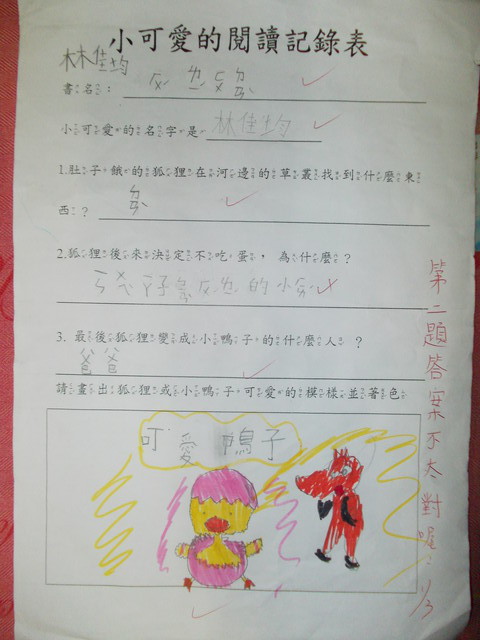 小可愛的閱讀記錄表
林佳均
書名：
小可愛的名字是 林佳均
1.肚子餓的狐狸在河邊的草叢找到什麼東
西？
2.狐狸後來決定不吃蛋，為什麼？
的小
3. 最後狐狸變成小鴨子的什麼人？
爸爸
請畫出狐狸或小鴨子可愛的模樣並著色
可愛鴨子
第二題答案不太對喔！
11/3